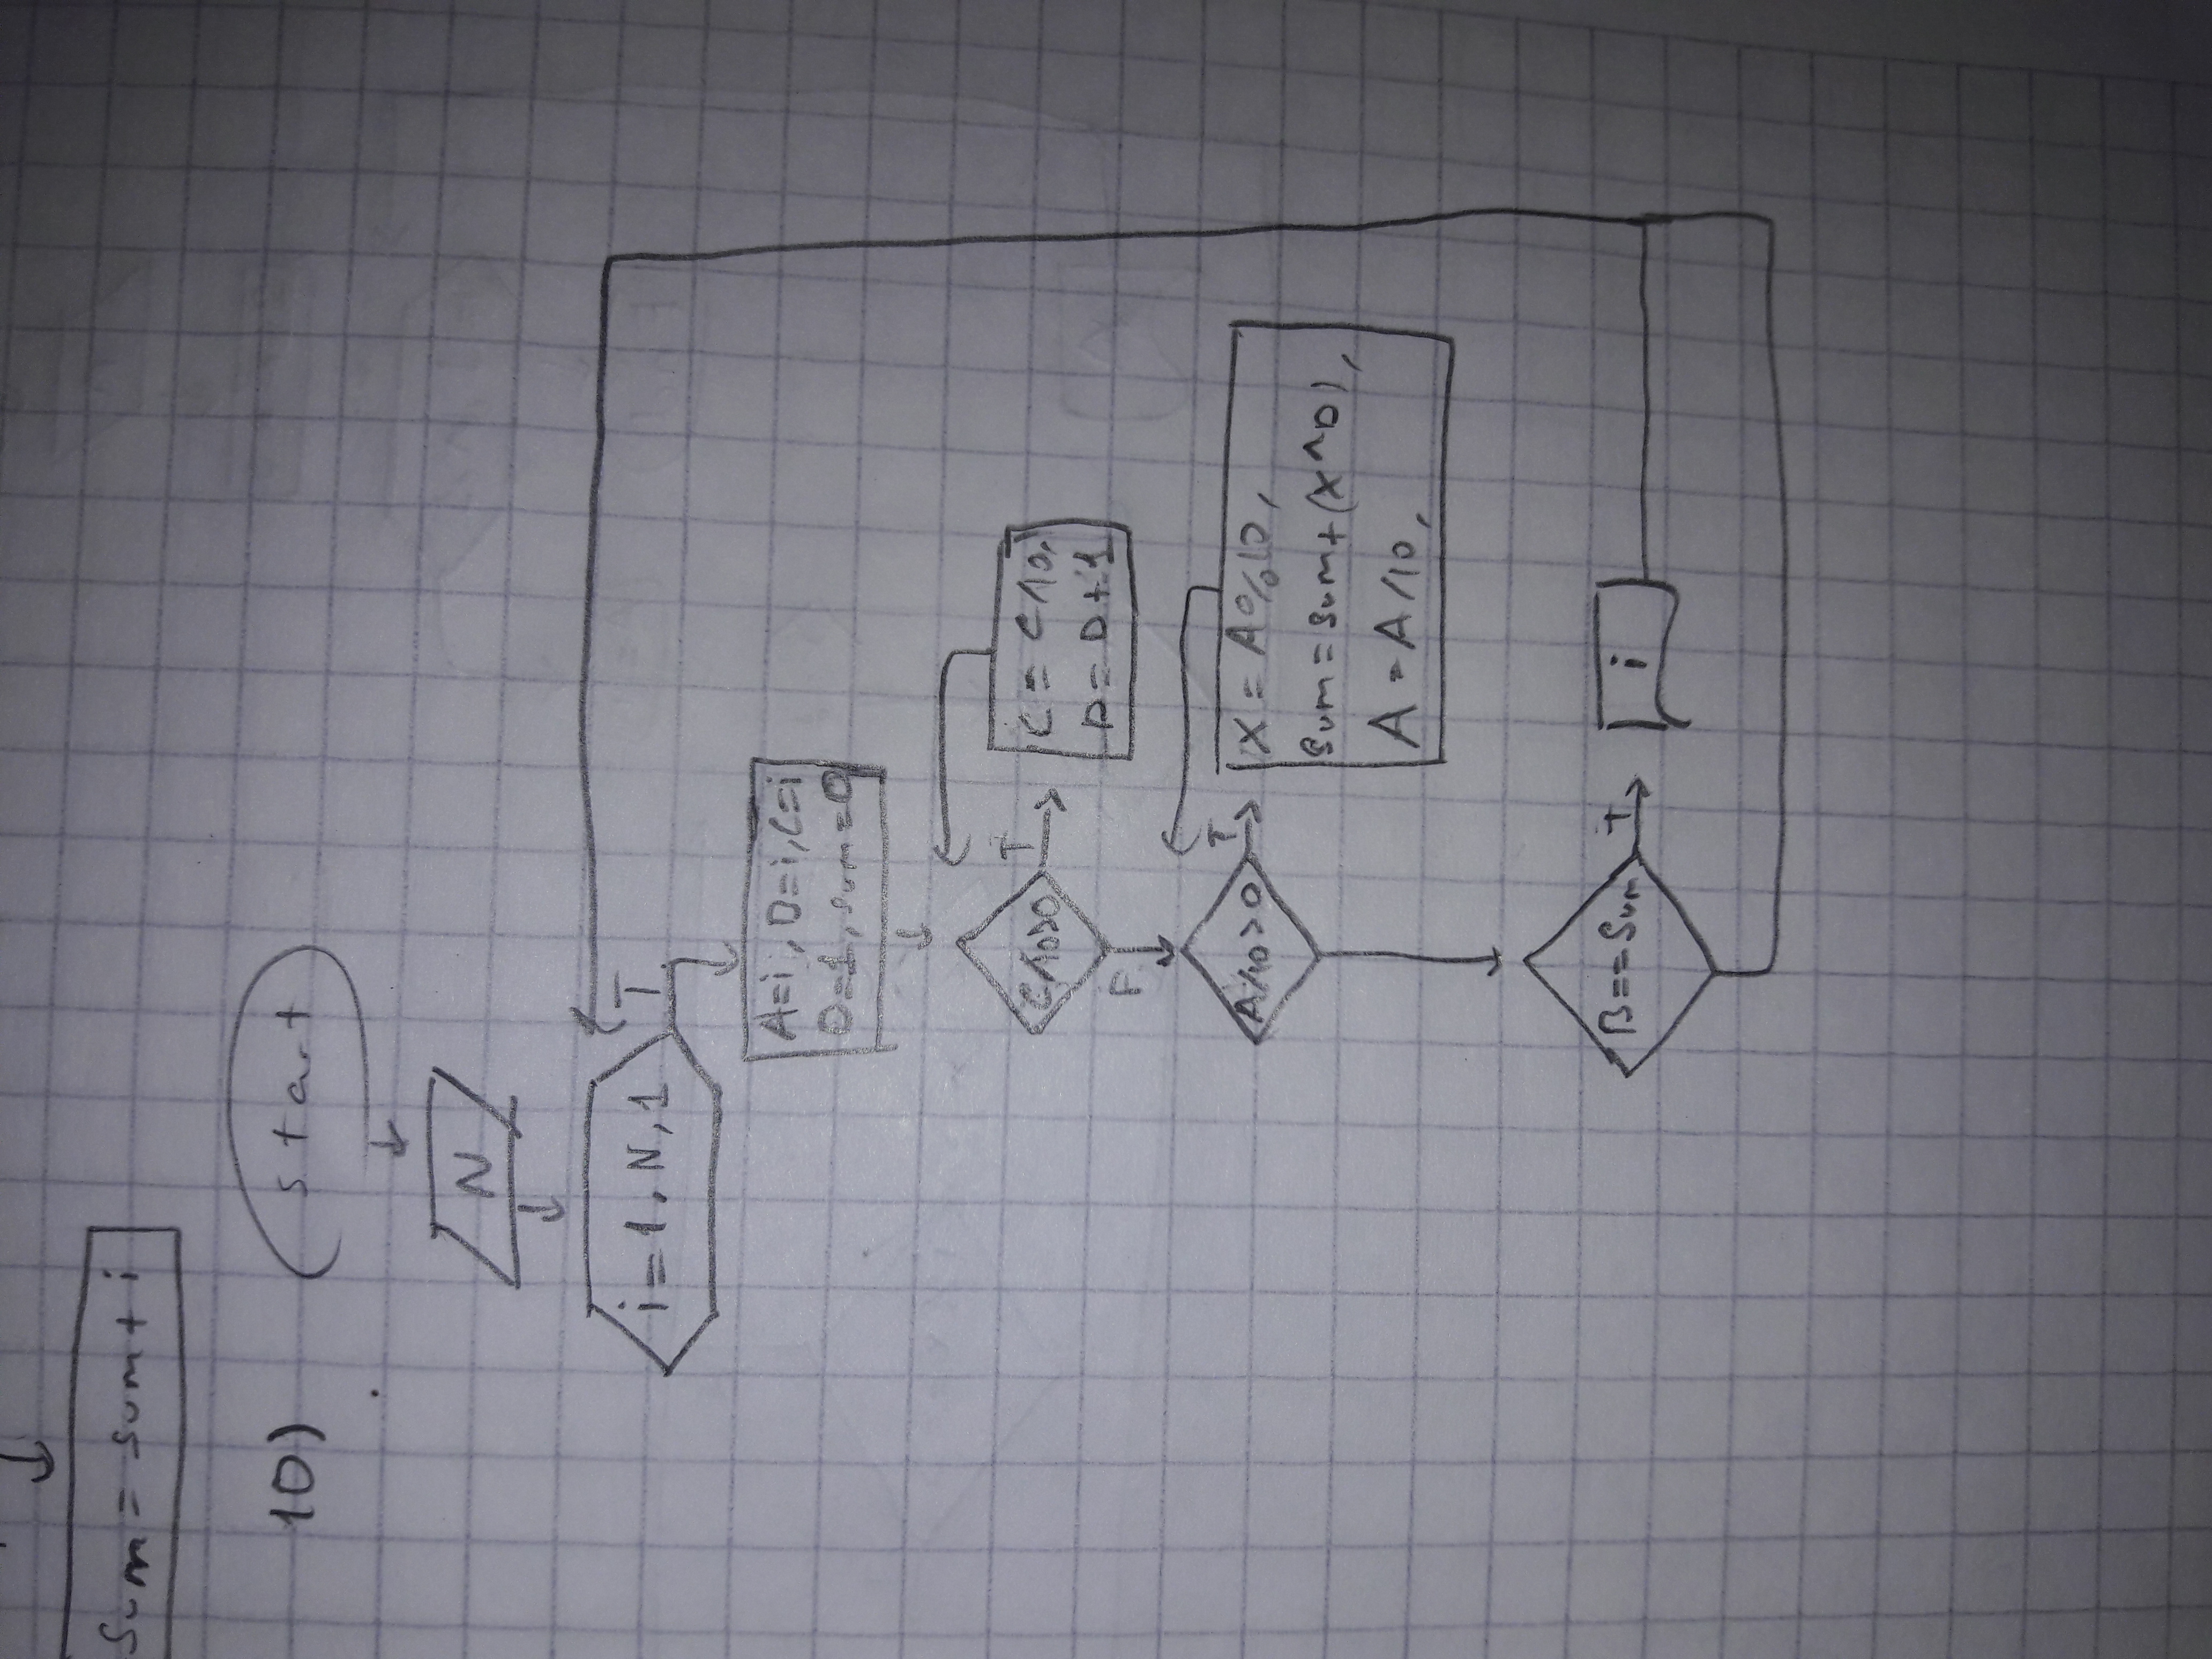 Sum = sum + i
10)
start
N
i = 1, N, 1
T
A=i, B=i, C=i
D=1, sum=0
C/10>0
T
C = C/10,
D = D+1
F
A/10>0
T
X = A%10,
Sum = sum+(X^D),
A = A/10,
B==Sum
T
i